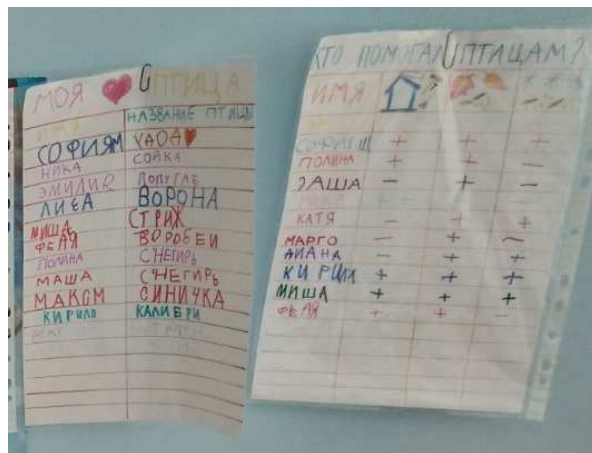 МОЯ ПТИЦА
НАЗВАНИЕ ПТИЦЫ
СОФИЯМ
НИКА СОЙКА
ЭМИЛИЕ ПОПУГАЕ
ЛИЕА ВОРОНА
МИША СТРИЖ
ФЕДЯ ВОРОБЕЙ
ПОЛИНА СНЕГИРЬ
МАША СНЕГИРЬ
МАКСМ СИНИЧКА
КИРИЛО КАЛИБРИ
КТО ПОМОГАЛ ПТИЦАМ?
ИМЯ
СОФИЯ Ш + + +
ПОЛИНА + + —
ДАША — + —
КАТЯ — + +
МАРГО — + —
ДИАНА — + +
КИРИЛЛ + + +
МИША + + +
ФЕДЯ + + —